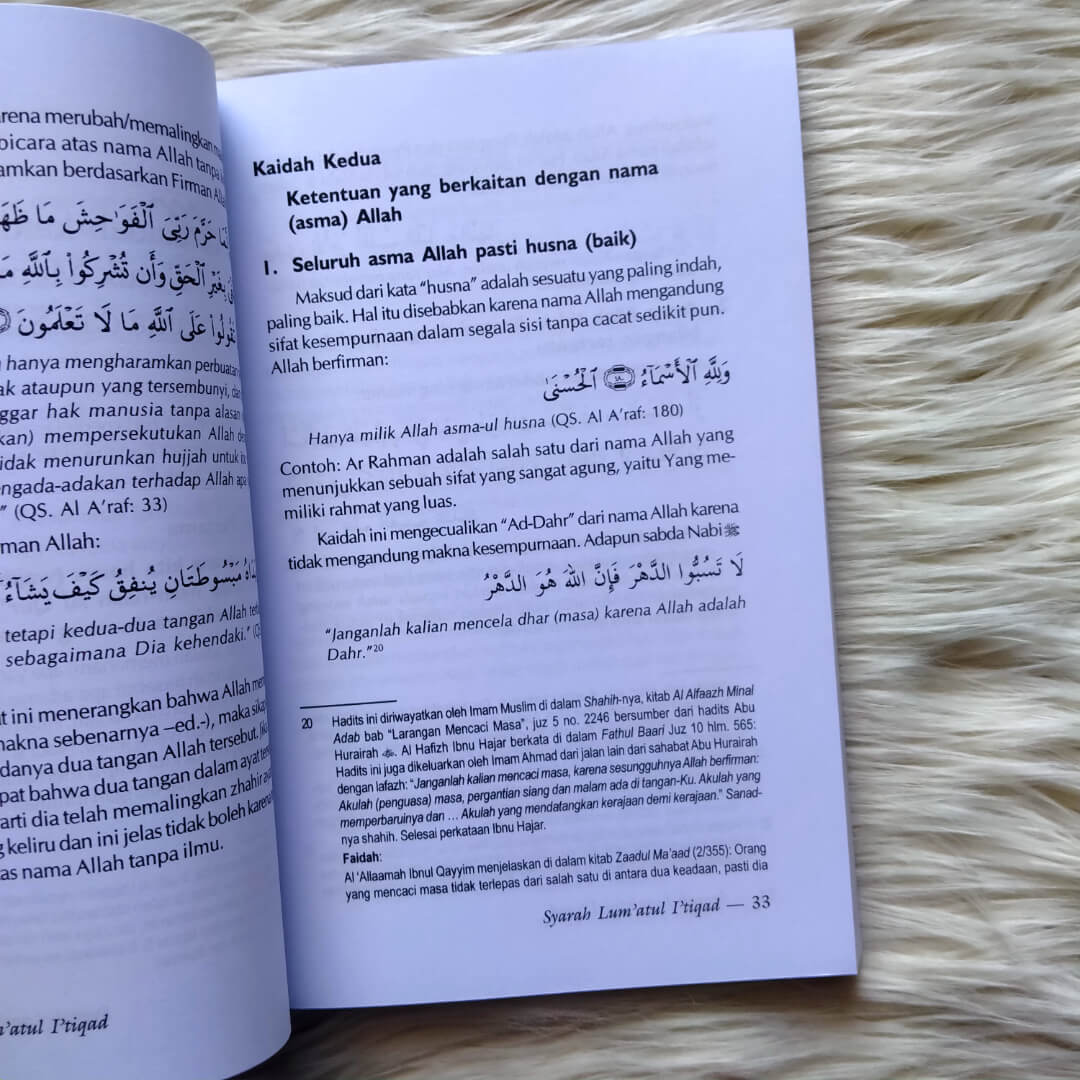 merubah/memalingkan
bicara atas nama Allah tanpa
berdasarkan Firman
حَرَّمَ رَبِّيَ ٱلْفَوَٰحِشَ مَا ظَهَرَ
بِغَيْرِ ٱلْحَقِّ وَأَن تُشْرِكُوا۟ بِٱللَّهِ
عَلَى ٱللَّهِ مَا لَا تَعْلَمُونَ
hanya mengharamkan
ataupun yang tersembunyi,
hak manusia tanpa alasan
mempersekutukan Allah
tidak menurunkan hujjah untuk
mengada-adakan terhadap Allah
" (QS. Al A'raf: 33)
Allah:
مَبْسُوطَتَانِ يُنفِقُ كَيْفَ يَشَآءُ
tetapi kedua-dua tangan Allah
sebagaimana Dia kehendaki."
ini menerangkan bahwa Allah
makna sebenarnya –ed.-), maka
dua tangan Allah tersebut.
bahwa dua tangan dalam ayat
dia telah memalingkan zhahir
keliru dan ini jelas tidak boleh karena
nama Allah tanpa ilmu.
I'tiqad
Kaidah Kedua
Ketentuan yang berkaitan dengan nama
(asma) Allah
1. Seluruh asma Allah pasti husna (baik)
Maksud dari kata "husna" adalah sesuatu yang paling indah,
paling baik. Hal itu disebabkan karena nama Allah mengandung
sifat kesempurnaan dalam segala sisi tanpa cacat sedikit pun.
Allah berfirman:
وَلِلَّهِ ٱلْأَسْمَآءُ ١٨٠ ٱلْحُسْنَىٰ
Hanya milik Allah asma-ul husna (QS. Al A'raf: 180)
Contoh: Ar Rahman adalah salah satu dari nama Allah yang
menunjukkan sebuah sifat yang sangat agung, yaitu Yang me-
miliki rahmat yang luas.
Kaidah ini mengecualikan "Ad-Dahr" dari nama Allah karena
tidak mengandung makna kesempurnaan. Adapun sabda Nabi ﷺ
لَا تَسُبُّوا الدَّهْرَ فَإِنَّ اللهَ هُوَ الدَّهْرُ
"Janganlah kalian mencela dhar (masa) karena Allah adalah
Dahr."20
20 Hadits ini diriwayatkan oleh Imam Muslim di dalam Shahih-nya, kitab Al Alfaazh Minal
Adab bab "Larangan Mencaci Masa", juz 5 no. 2246 bersumber dari hadits Abu
Hurairah. Al Hafizh Ibnu Hajar berkata di dalam Fathul Baari Juz 10 hlm. 565:
Hadits ini juga dikeluarkan oleh Imam Ahmad dari jalan lain dari sahabat Abu Hurairah
dengan lafazh: "Janganlah kalian mencaci masa, karena sesungguhnya Allah berfirman:
Akulah (penguasa) masa, pergantian siang dan malam ada di tangan-Ku. Akulah yang
memperbaruinya dan … Akulah yang mendatangkan kerajaan demi kerajaan." Sanad-
nya shahih. Selesai perkataan Ibnu Hajar.
Faidah:
Al 'Allaamah Ibnul Qayyim menjelaskan di dalam kitab Zaadul Ma'aad (2/355): Orang
yang mencaci masa tidak terlepas dari salah satu di antara dua keadaan, pasti dia
Syarah Lum'atul I'tiqad — 33